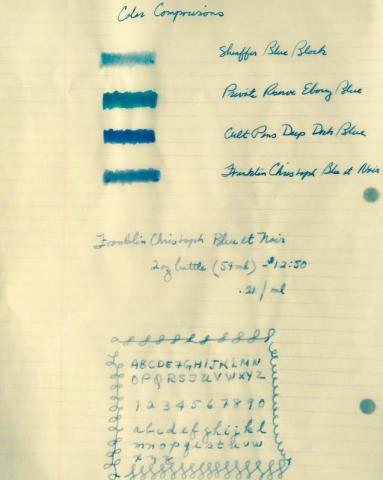 Color Comparisons
Sheaffer Blue/Black
Private Reserve Ebony Blue
Cult Pens Deep Dark Blue
Franklin Christoph Blue et Noir
Franklin Christoph Blue et Noir
2oz bottle (59ml) - $12:50
.21/ml
ABCDEFGHIJKLMN
OPQRSTUVWXYZ
1234567890
abcdefghijkl
mnopqrstuvw
xyz